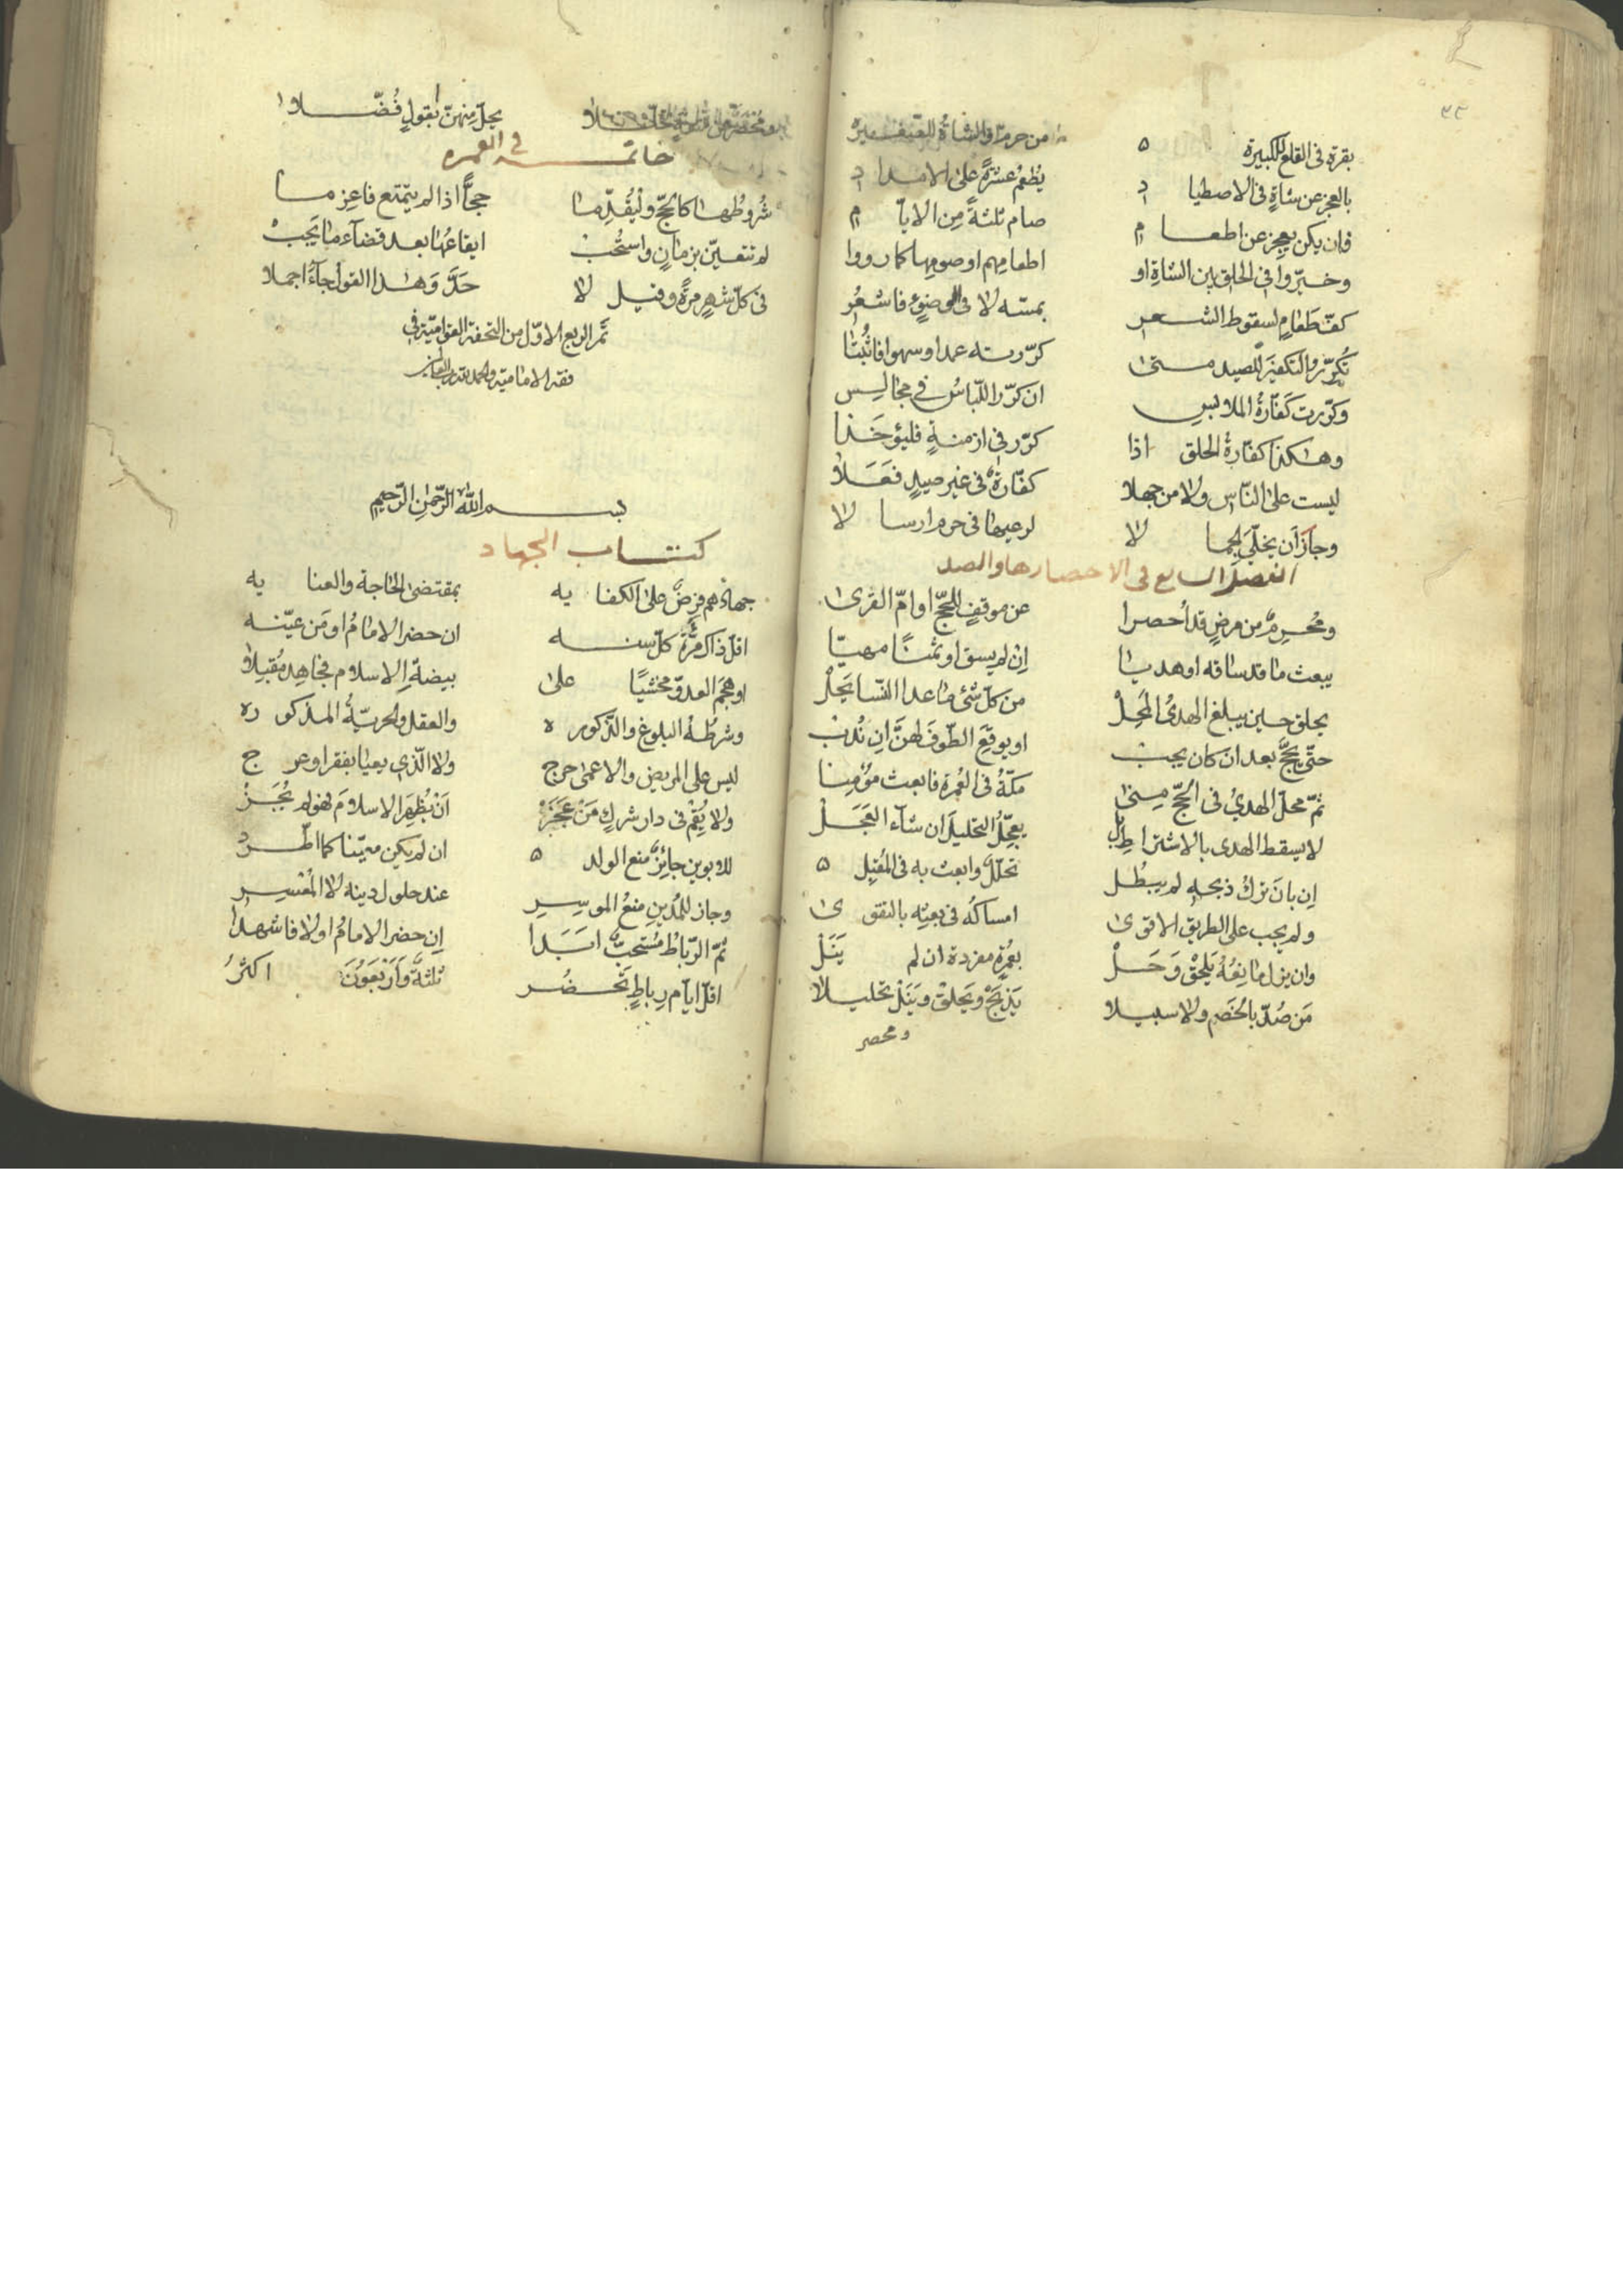 ٣٣
بقرة فى القلع للكبيرة من حرم والشاة للصغيرة
بالعجز عن شاة فى الاصطياد يُطعم عشرةً على الامداد
فان يكن يعجز عن اطعام صام ثلثةً مِن الايام
وخيّروا فى الحلق بين الشاةِ او اطعامهم او صومها كما رووا
كفّ طَعامٍ لسقوط الشعر بمسّه لا فى الوضوءِ فاشعُر
تُكرّر التكفيرَ للصيد متى كرّرته عمدا وسهوا فاثبُتا
وكرّرت كفّارةُ الملابسِ ان كرّر اللّباسُ فى مجالس
وهكذا كفّارة الحلق اذا كرّر فى ازمنةٍ فليؤخذا
ليست على النّاس ولا من جهلا كفّارة فى غير صيدٍ فعَلا
وجاز أن يخلّى لا لرعيها فى حرم ارسالا
الفصل السابع فى الاحصار والصد
ومُحرِمٌ من مرضٍ قد أحصرا عن موقفٍ للحجّ او امّ القرى
يبعث ما قد ساقه او هديا اِن لم يسق او ثمنًا مهيّا
يحلق حين يبلغ الهدىُ المَحِلّ من كلّ شئ ما عدا النّسا يَحِلّ
حتّى يحجَّ بعد ان كان يجب او يوقعَ الطّوفَ لهنَّ ان نُدب
ثمّ محلّ الهدىُ فى الحجّ مِنى مكّةُ فى العُمرة فابعث مؤمِنا
لا يسقط الهدى بالاشتراط بل يعجّلُ التحليلَ ان شآء العَجَلْ
اِن بانَ تركُ ذبحه لم يبطُل تحلّلٌ وابعث به فى المُقبِل ه
ولم يجب على الطريق الاقوى امساكُه فى بعثِه بالتقوى
وان يزل مانِعُهُ يَلحَقْ وَحَلْ بعُمرةٍ مفردة ان لم يَنَلْ
مَن صُدّ بالخَصم ولا سبيلا يَذبَحْ ويَحلقْ ويَنَلْ تحليلا
ومحصر
يحلّ مِنهنّ بقولٍ فُضّلا
خاتمه فى العمره
شُروطُها كالحجّ وليُقدِّما حجًّا اذا لم يتمتّع فاعزما
لم تتعيّن بزمانٍ واستُحِبْ ايقاعُها بعد قضآءِ ما يَجِبْ
فى كلّ شهرٍ مرّةً وقيل لا حَدَّ وَهذا القول جآءَ اجملا
تمّ الربع الاوّل من التحفة القواميّة فى
فقه الاماميّة والحمد لله ربّ العالمين
بسم اللّه الرّحمنِ الرّحيمِ
كتاب الجهاد
جهادُهم فرضٌ على الكفايه بمقتضى الحاجة والعنايه
اقلّ ذاك مرّةً كلّ سنه ان حضر الامامُ او مَن عيّنه
او هجَمَ العدوّ مخشيًا على بيضةِ الاسلام فجاهِد مُقبِلا
وشرطُهُ البلوغ والذّكوره والعقل والحريّةُ المذكوره
ليس على المريض والاعمى حرج ولا الّذى يعيا بفقر او عرج
ولا يُقِمْ فى دار شركٍ مَنْ عَجَزْ اَنْ يُظهِرَ الاسلامَ فهو لم يُجَزْ
للابوين جائِزٌ منع الولد ان لم يكن معيّنا كما اطّرد
وجاز للمُدينِ منعُ الموسِرِ عند حلول دينه لا المُعسِر
ثمّ الرّباطُ مُستحبٌّ ابَدا اِن حضر الامامُ او لا فاشهدا
اقلّ ايّام رِباطٍ تَحضُر ثلثةٌ وَاَرْبَعَوُنَ اكثرُ